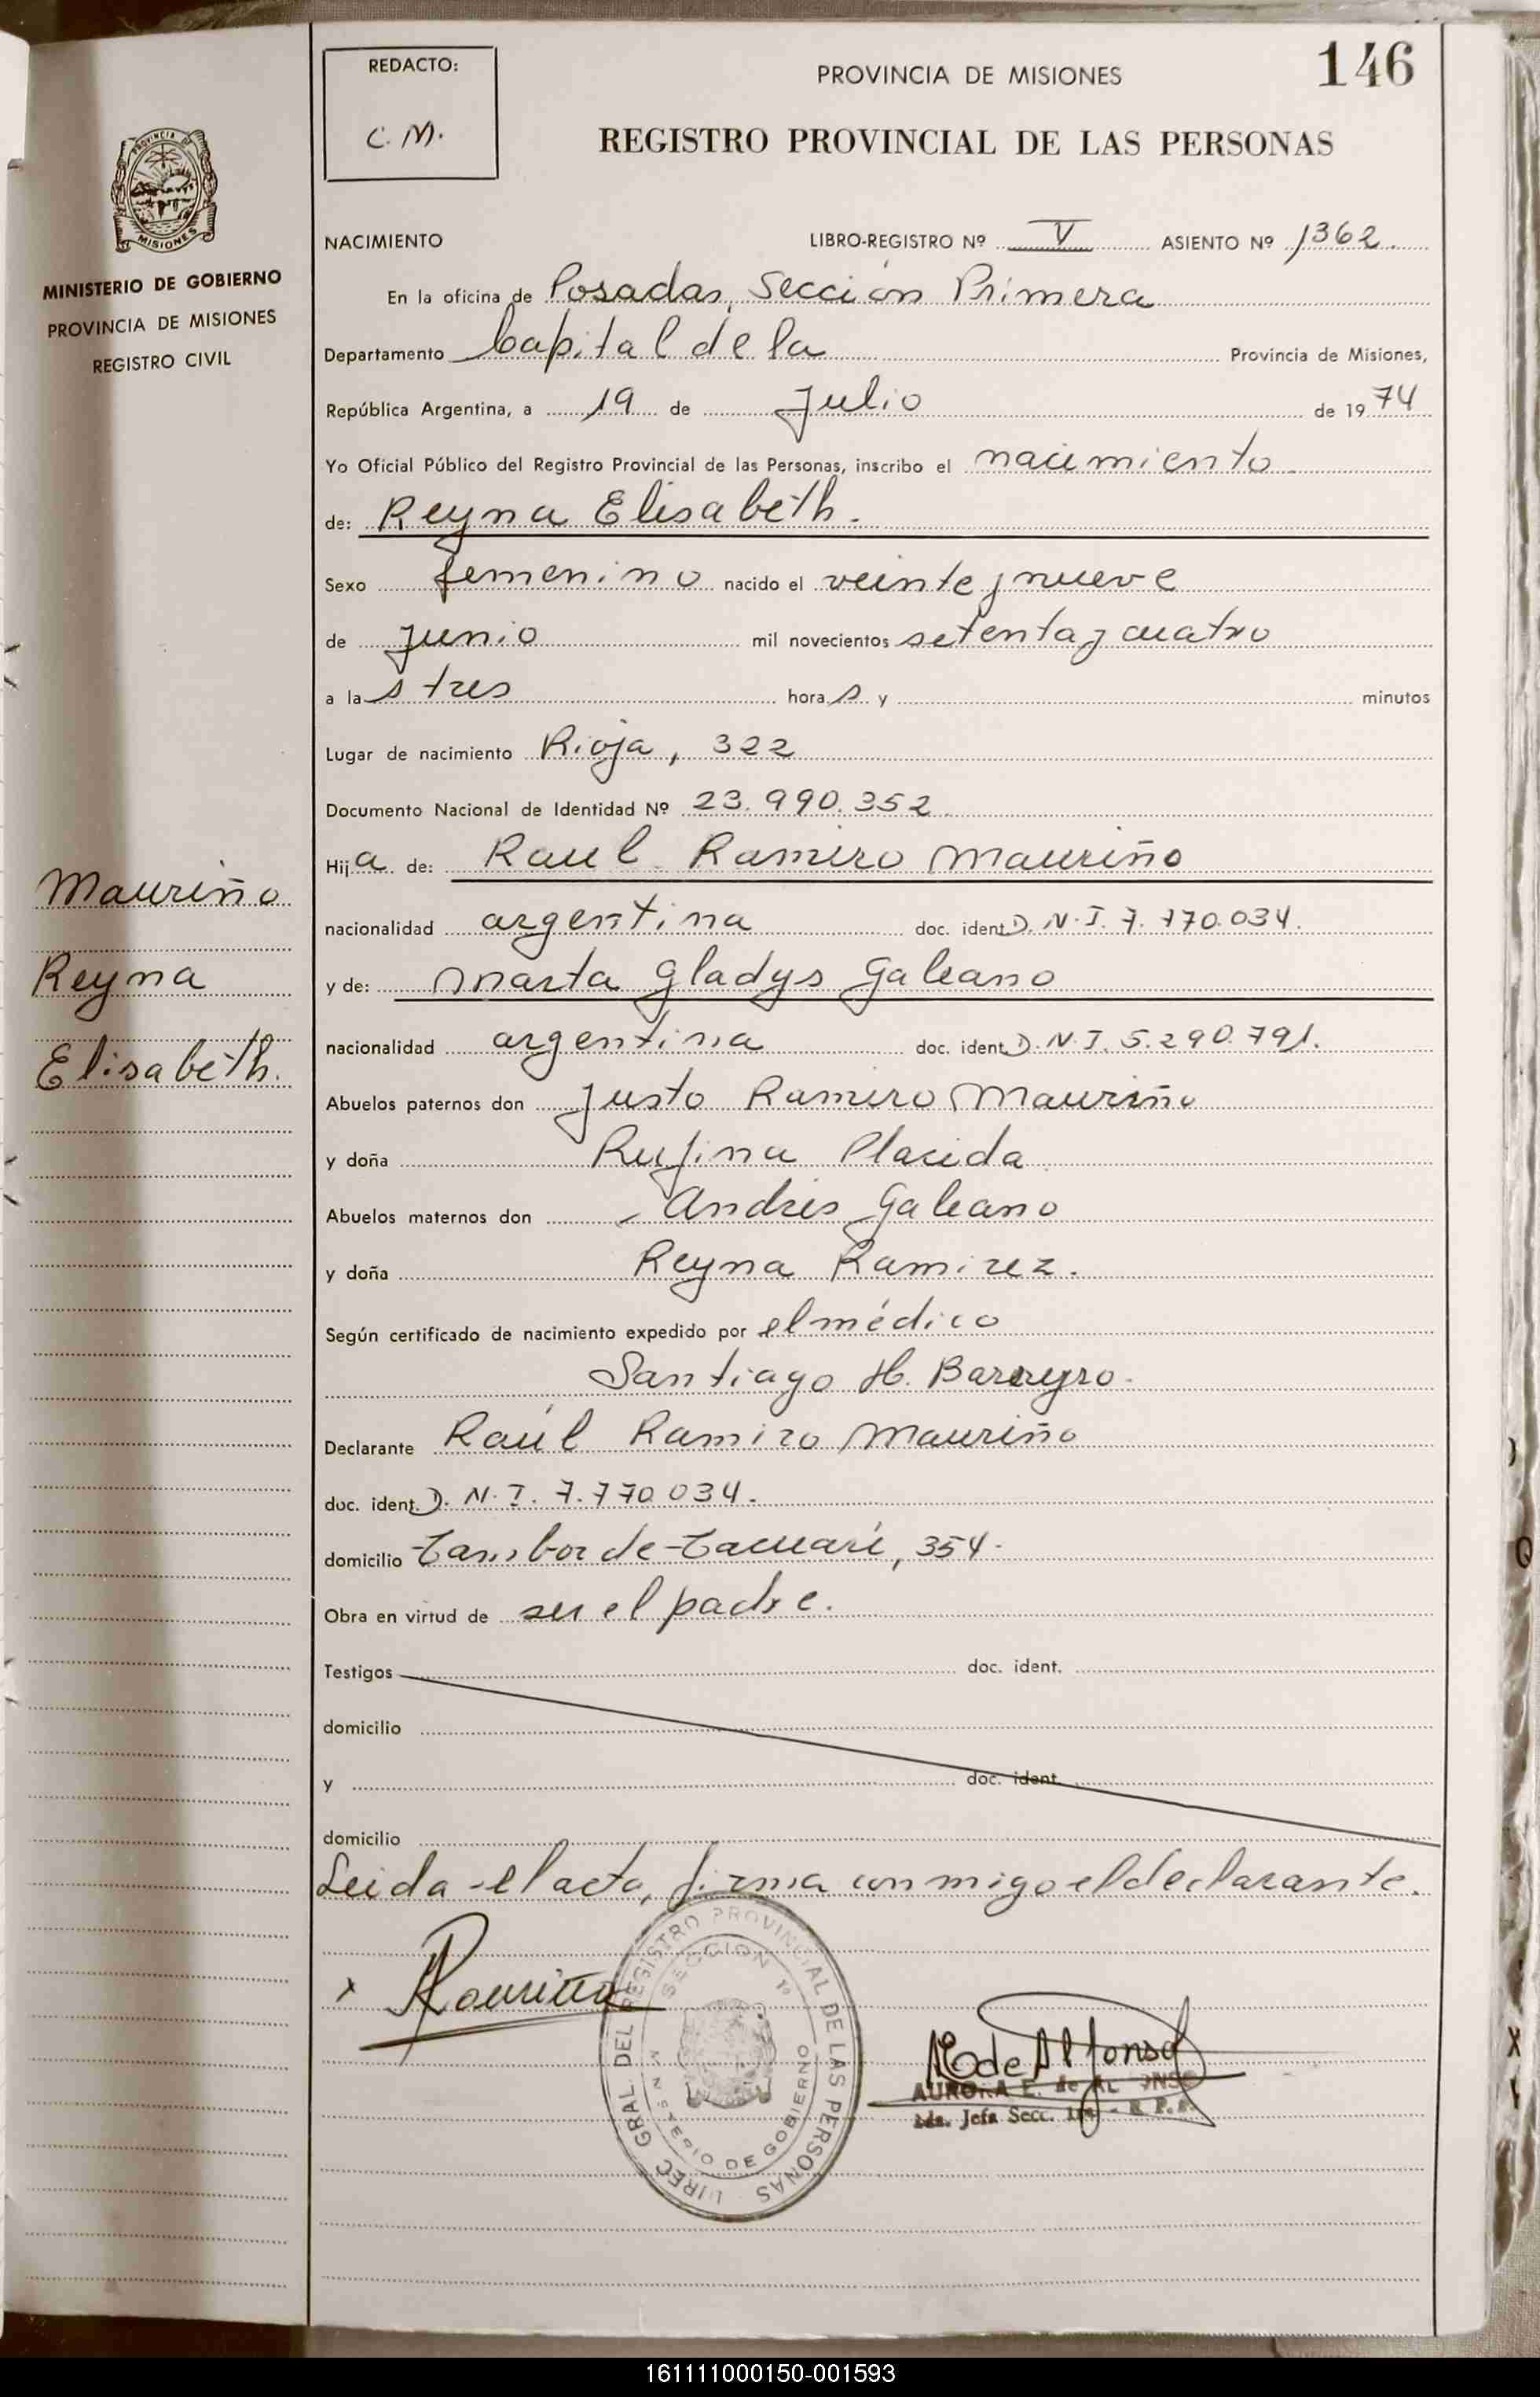 REDACTO:
C. M.
PROVINCIA DE MISIONES
146
REGISTRO PROVINCIAL DE LAS PERSONAS
MISIONES
MINISTERIO DE GOBIERNO
PROVINCIA DE MISIONES
REGISTRO CIVIL
NACIMIENTO LIBRO-REGISTRO Nº V ASIENTO Nº 1362
En la oficina de Posadas, Sección Primera
Departamento Capital de la Provincia de Misiones,
República Argentina, a 19 de Julio de 1974
Yo Oficial Público del Registro Provincial de las Personas, inscribo el nacimiento
de: Reyna Elisabeth.
Sexo femenino nacido el veinte y nueve
de Junio mil novecientos setenta y cuatro
a las tres horas y minutos
Lugar de nacimiento Rioja, 322
Documento Nacional de Identidad Nº 23.990.352
Hija de: Raul Ramiro Mauriño
nacionalidad argentina doc. ident D.N.I. 7.770.034.
y de: Marta Gladys Galeano
nacionalidad argentina doc. ident D.N.I. 5.290.791.
Abuelos paternos don Justo Ramiro Mauriño
y doña Rufina Placida
Abuelos maternos don Andres Galeano
y doña Reyna Ramirez.
Según certificado de nacimiento expedido por el médico
Santiago H. Barreyro.
Declarante Raúl Ramiro Mauriño
doc. ident. D.N.I. 7.770.034.
domicilio Tambor de Tacuarí, 354.
Obra en virtud de ser el padre.
Testigos doc. ident.
domicilio
y doc. ident.
domicilio
Leida el acta, firma conmigo el declarante.
Mauriño
Reyna
Elisabeth.
x RMauriño
DIREC. GRAL. DEL REGISTRO PROVINCIAL DE LAS PERSONAS
SECCION 1º
MINISTERIO DE GOBIERNO
AE de Alfonso
AURORA E. de ALFONSO
Jefa Secc. 1ra. - R.P.P.
161111000150-001593